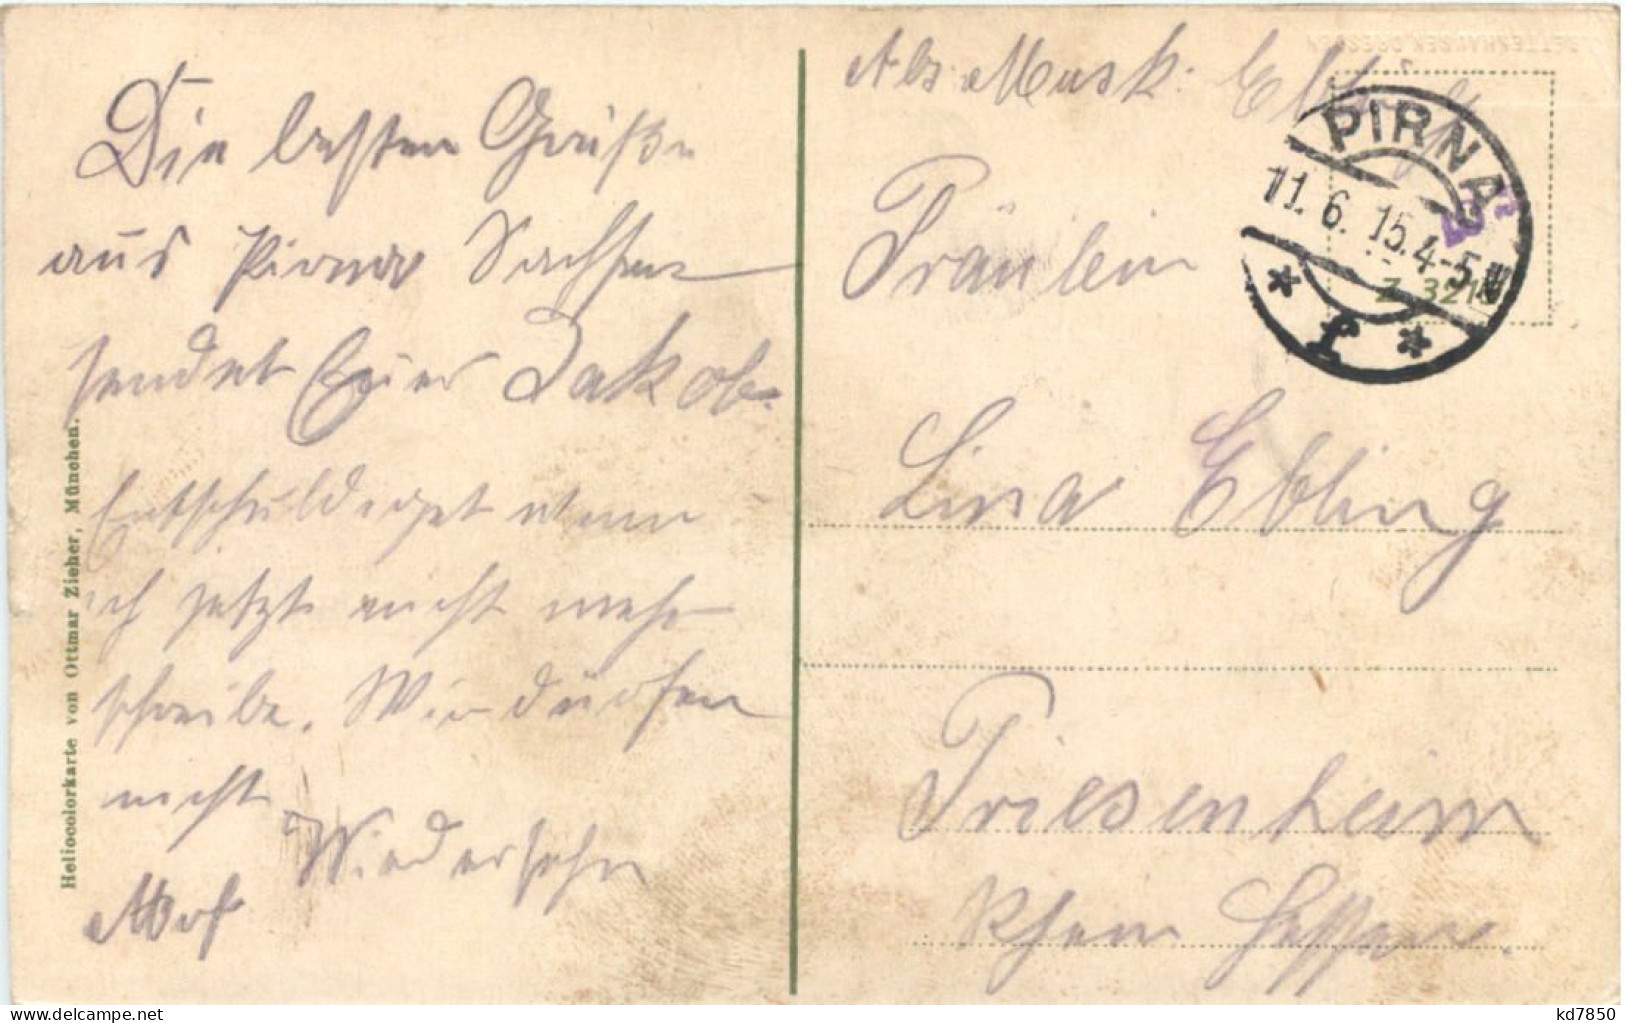 Die besten Grüße
aus Pirna Sachsen
sendet Euer Jakob.
Entschuldiget wenn
ich jetzt nicht mehr
schreibe. Wir dürfen
nicht
Auf Wiedersehn
Heliocolorkarte von Ottmar Zieher, München.
Abs. Musk. Ebling
PIRNA
11. 6. 15. 4-5 N
* f *
Z 321
Fräulein
Lina Ebling
Friesenheim
Rhein Hessen.
kd7850